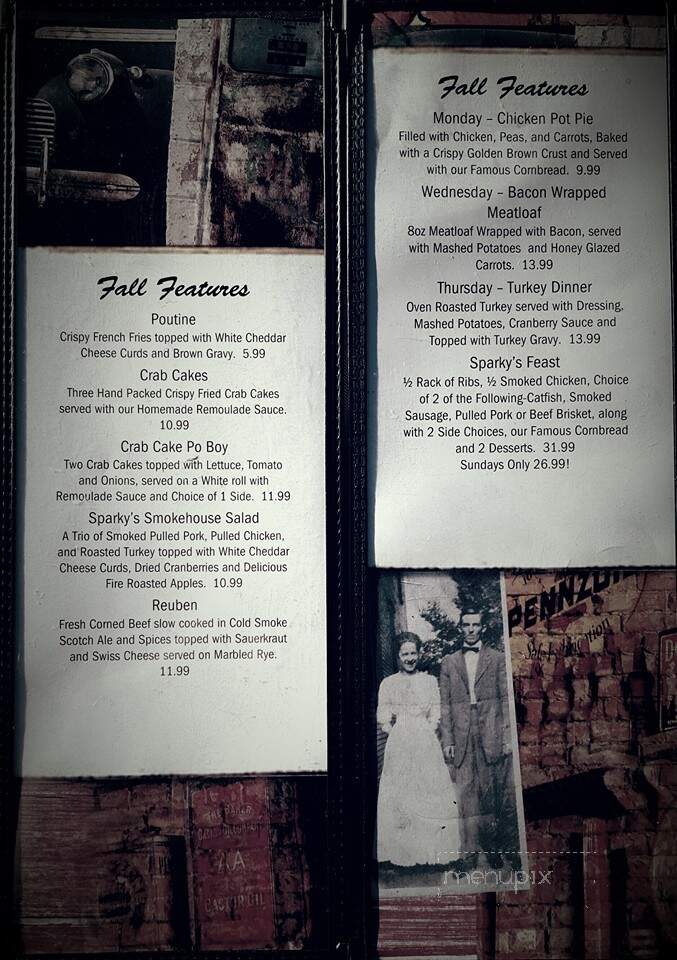 Fall Features
Poutine
Crispy French Fries topped with White Cheddar
Cheese Curds and Brown Gravy. 5.99
Crab Cakes
Three Hand Packed Crispy Fried Crab Cakes
served with our Homemade Remoulade Sauce.
10.99
Crab Cake Po Boy
Two Crab Cakes topped with Lettuce, Tomato
and Onions, served on a White roll with
Remoulade Sauce and Choice of 1 Side. 11.99
Sparky's Smokehouse Salad
A Trio of Smoked Pulled Pork, Pulled Chicken,
and Roasted Turkey topped with White Cheddar
Cheese Curds, Dried Cranberries and Delicious
Fire Roasted Apples. 10.99
Reuben
Fresh Corned Beef slow cooked in Cold Smoke
Scotch Ale and Spices topped with Sauerkraut
and Swiss Cheese served on Marbled Rye.
11.99
AA
CASTOR OIL
Fall Features
Monday – Chicken Pot Pie
Filled with Chicken, Peas, and Carrots, Baked
with a Crispy Golden Brown Crust and Served
with our Famous Cornbread. 9.99
Wednesday – Bacon Wrapped
Meatloaf
8oz Meatloaf Wrapped with Bacon, served
with Mashed Potatoes and Honey Glazed
Carrots. 13.99
Thursday – Turkey Dinner
Oven Roasted Turkey served with Dressing,
Mashed Potatoes, Cranberry Sauce and
Topped with Turkey Gravy. 13.99
Sparky's Feast
½ Rack of Ribs, ½ Smoked Chicken, Choice
of 2 of the Following-Catfish, Smoked
Sausage, Pulled Pork or Beef Brisket, along
with 2 Side Choices, our Famous Cornbread
and 2 Desserts. 31.99
Sundays Only 26.99!
PENNZOIL
menupix